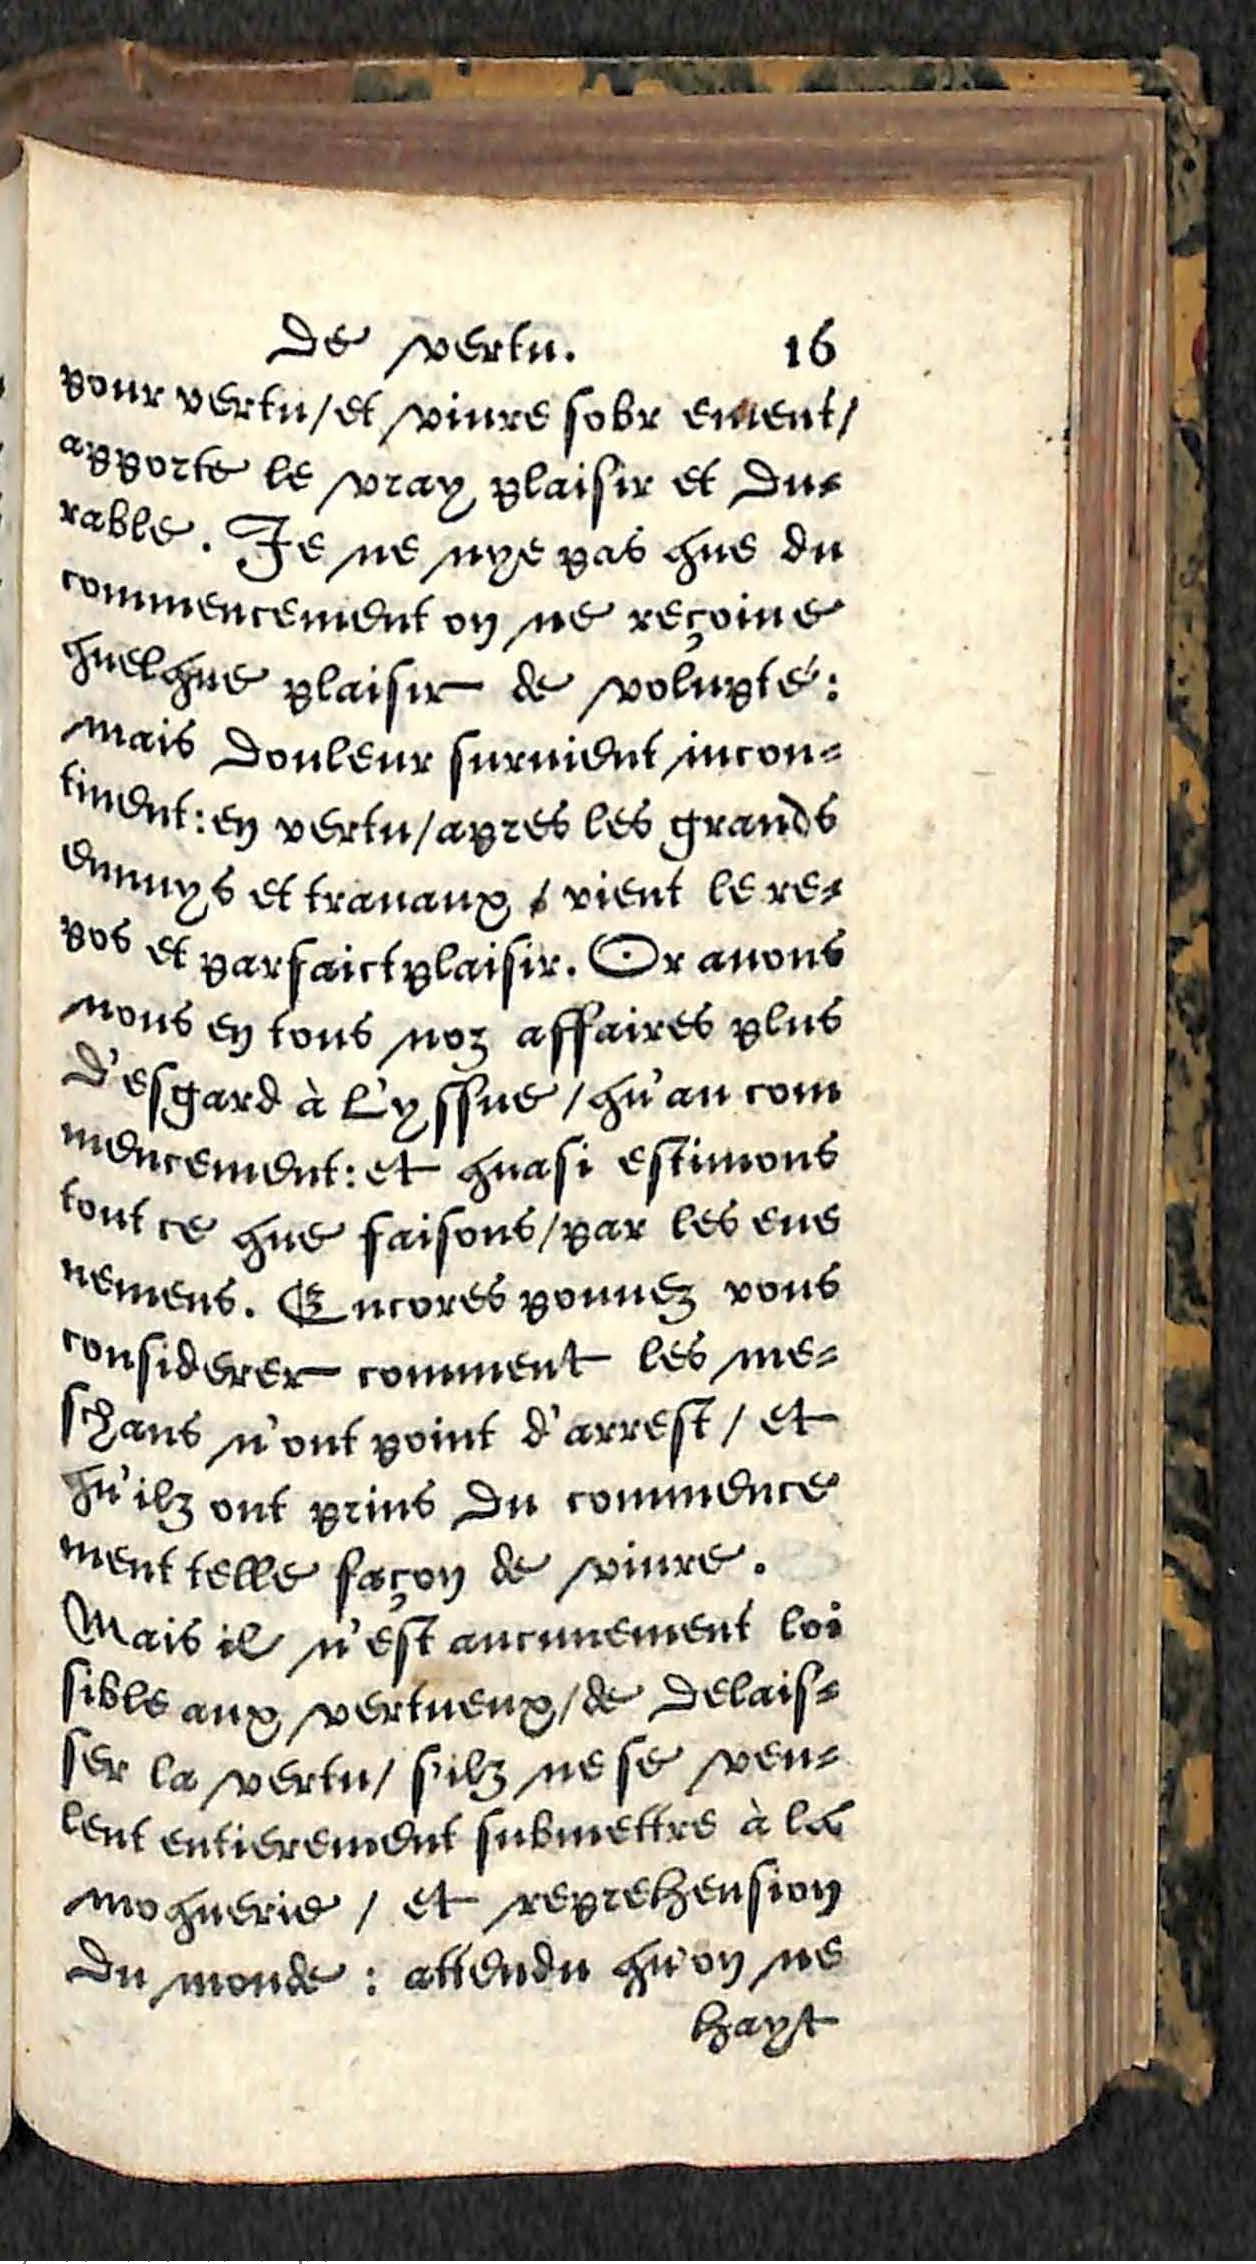 De vertu. 16
pour vertu/et viure sobr ement/
apporte le vray plaisir et du=
rable. Je ne nye pas que du
commencement on ne reçoiue
quelque plaisir de volupté:
mais douleur suruient incon=
tinent: en vertu/apres les grands
ennuys et trauaux / vient le re=
pos et parfaict plaisir. Or auons
nous en tous noz affaires plus
d'esgard à l'yssue /qu'au com
mencement: et quasi estimons
tout ce que faisons/par les eue
nemens. Encores pouuez vous
considerer comment les me=
schans n'ont point d'arrest/ et
qu'ilz ont prins du commence
ment telle façon de viure.
Mais il n'est aucunement loi
sible aux vertueux/de delais=
ser la vertu/ s'ilz ne se veu=
lent entierement submettre à la
moquerie / et reprehension
du monde : attendu qu'on ne
hayt